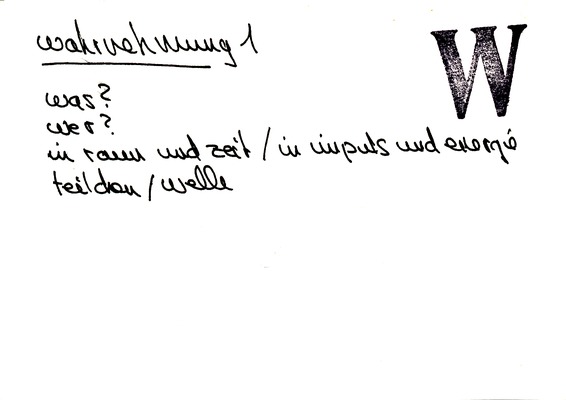 wahrnehmung 1
W
was?
wer?
in raum und zeit / in impuls und energie
teilchen / welle